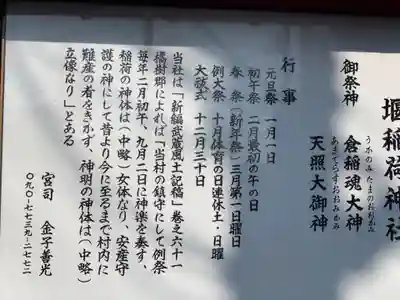 堰稲荷神社
御祭神
倉稲魂大神
うかのみたまのおおかみ
天照大御神
あまてらすおおみかみ
行事
元旦祭 一月一日
初午祭 二月最初の午の日
春祭（新年祭）三月第一日曜日
例大祭 十月体育の日連休土・日曜
大祓式 十二月三十日
当社は「新編武蔵風土記稿」巻之六十一
橘樹郡によれば「当村の鎮守にして例祭
毎年二月初午、九月二日に神楽を奏す、
稲荷の神体は（中略）女体なり、安産守
護の神にして昔より今に至るまで村内に
難産の者をきかず、神明の神体は（中略）
立像なり」とある
宮司 金子善光
〇九〇-七七三九-二七七二